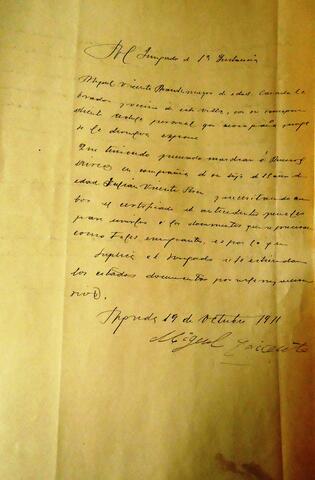 Al Juzgado de 1ª Instancia
Miguel Vicente mayor de edad, Casado La
brador y vecino de esta villa, con su correspon
diente cedula personal que acompaña
se le devuelva expone
Que teniendo pensado marchar á Buenos
Aires en compañia de su hijo de años de
edad Julian Vicente y necesitando am
bos el certificado de antecedentes penales
para unirlos a los documentos que se precisan
como tales emigrantes, es por lo que
Suplica al Juzgado se le extiendan
los citados documentos por
Agreda 19 de Octubre 1911
Miguel Vicente